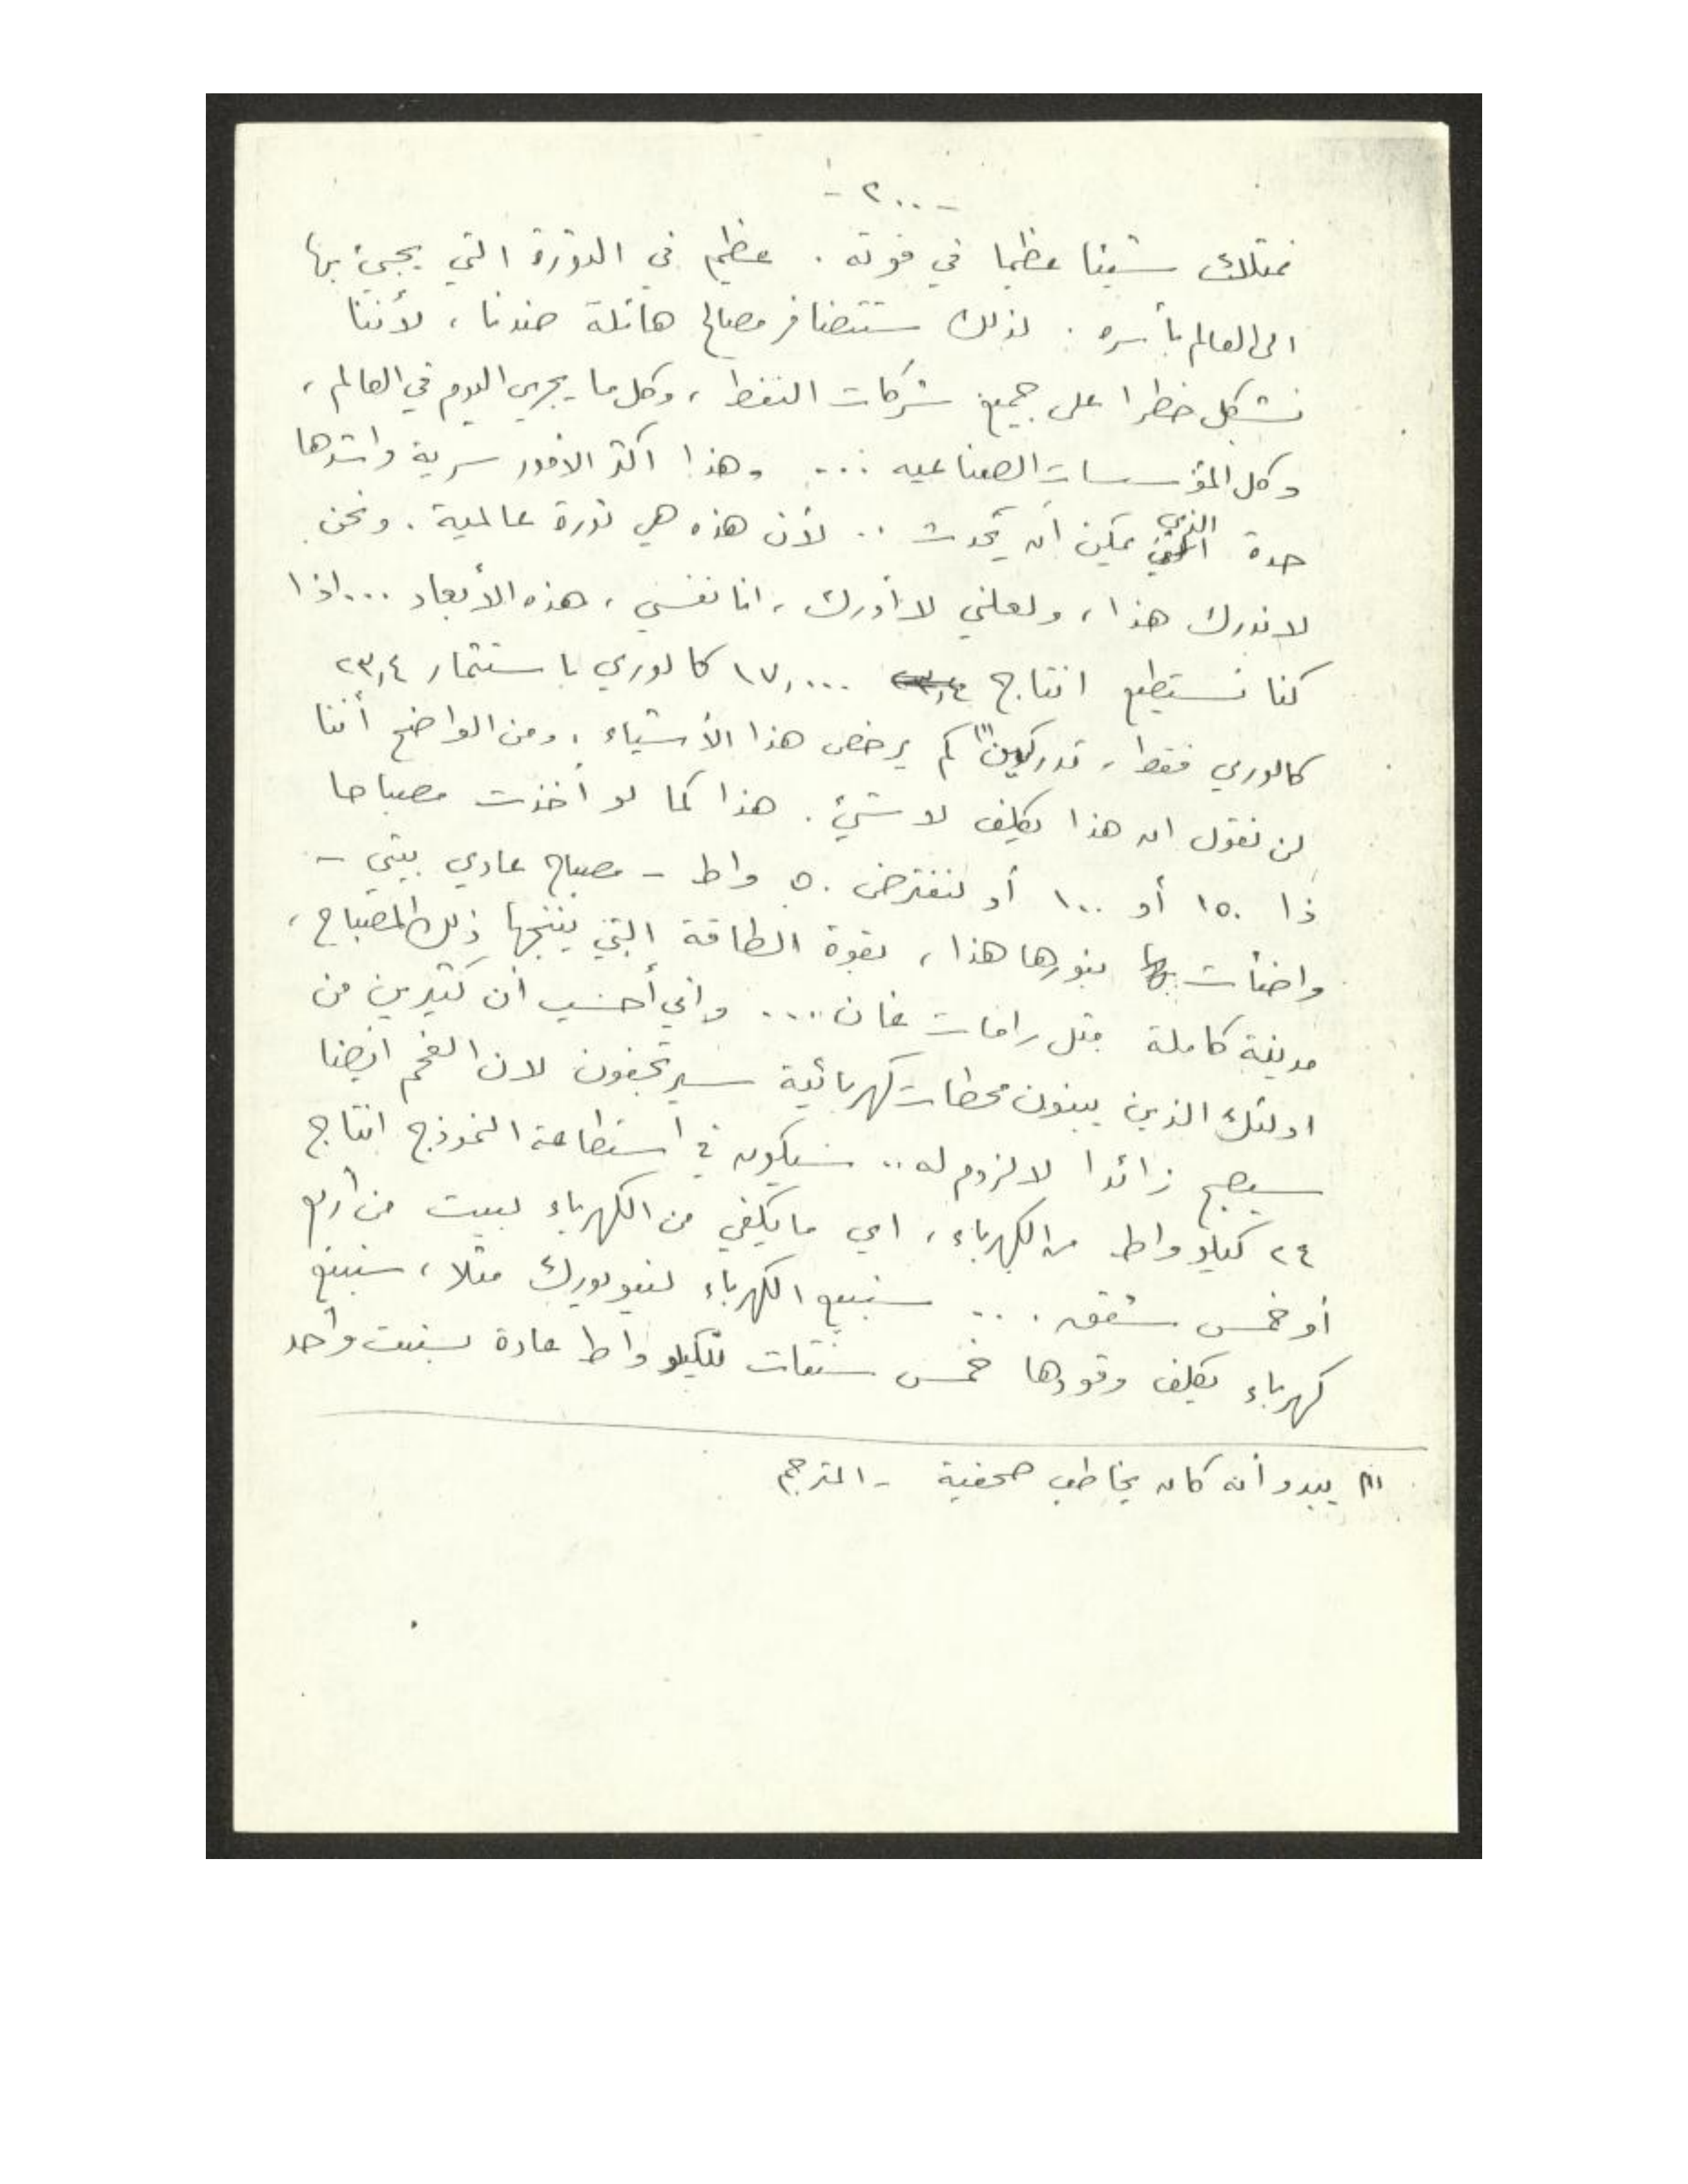 - ٢٠٠ -
نمتلك شيئا عظيما في قوته . عظيم في الثورة التي يجيئ بها
الى العالم بأسره . لذلك ستتضافر مصالح هائلة ضدنا ، لأننا
نشكل خطرا على جميع شركات النفط ، وكل ما يجري اليوم في العالم ،
وكل المؤسسات الصناعيه ... وهذا اكثر الامور سرية واشدها
حدة الذي يمكن أن يحدث .. لأن هذه هي ثورة عالمية . ونحن
لا ندرك هذا ، ولعلني لا أدرك ، انا نفسي ، هذه الأبعاد ... اذا
كنا نستطيع انتاج ١٧,٠٠٠ كالوري باستثمار ٢٣,٤
كالوري فقط ، تدركين (١) كم يرخص هذا الأشياء . ومن الواضح أننا
لن نقول ان هذا يكلف لا شيئ . هذا كما لو أخذت مصباحا
ذا ١٥٠ أو ١٠٠ أو لنفترض ٥٠ واط - مصباح عادي بيتي -
واضأت بنورها هذا ، بقوة الطاقة التي ينتجها ذلك المصباح ،
مدينة كاملة مثل رامات غان .... واني أحسب أن كثيرين من
اولئك الذين يبنون محطات كهربائية سيرتجفون لان الفحم ايضا
سيصبح زائدا لا لزوم له .. سيكون في استطاعة النموذج انتاج
٢٤ كيلو واط من الكهرباء ، اي ما يكفي من الكهرباء لبيت من أربع
أو خمس شقق . .. سنبيع الكهرباء لنيويورك مثلا ، سنبيع
كهرباء يكلف وقودها خمس سنتات للكيلو واط عادة بسنت واحد
(١) يبدو أنه كان يخاطب صحفية - المترجم